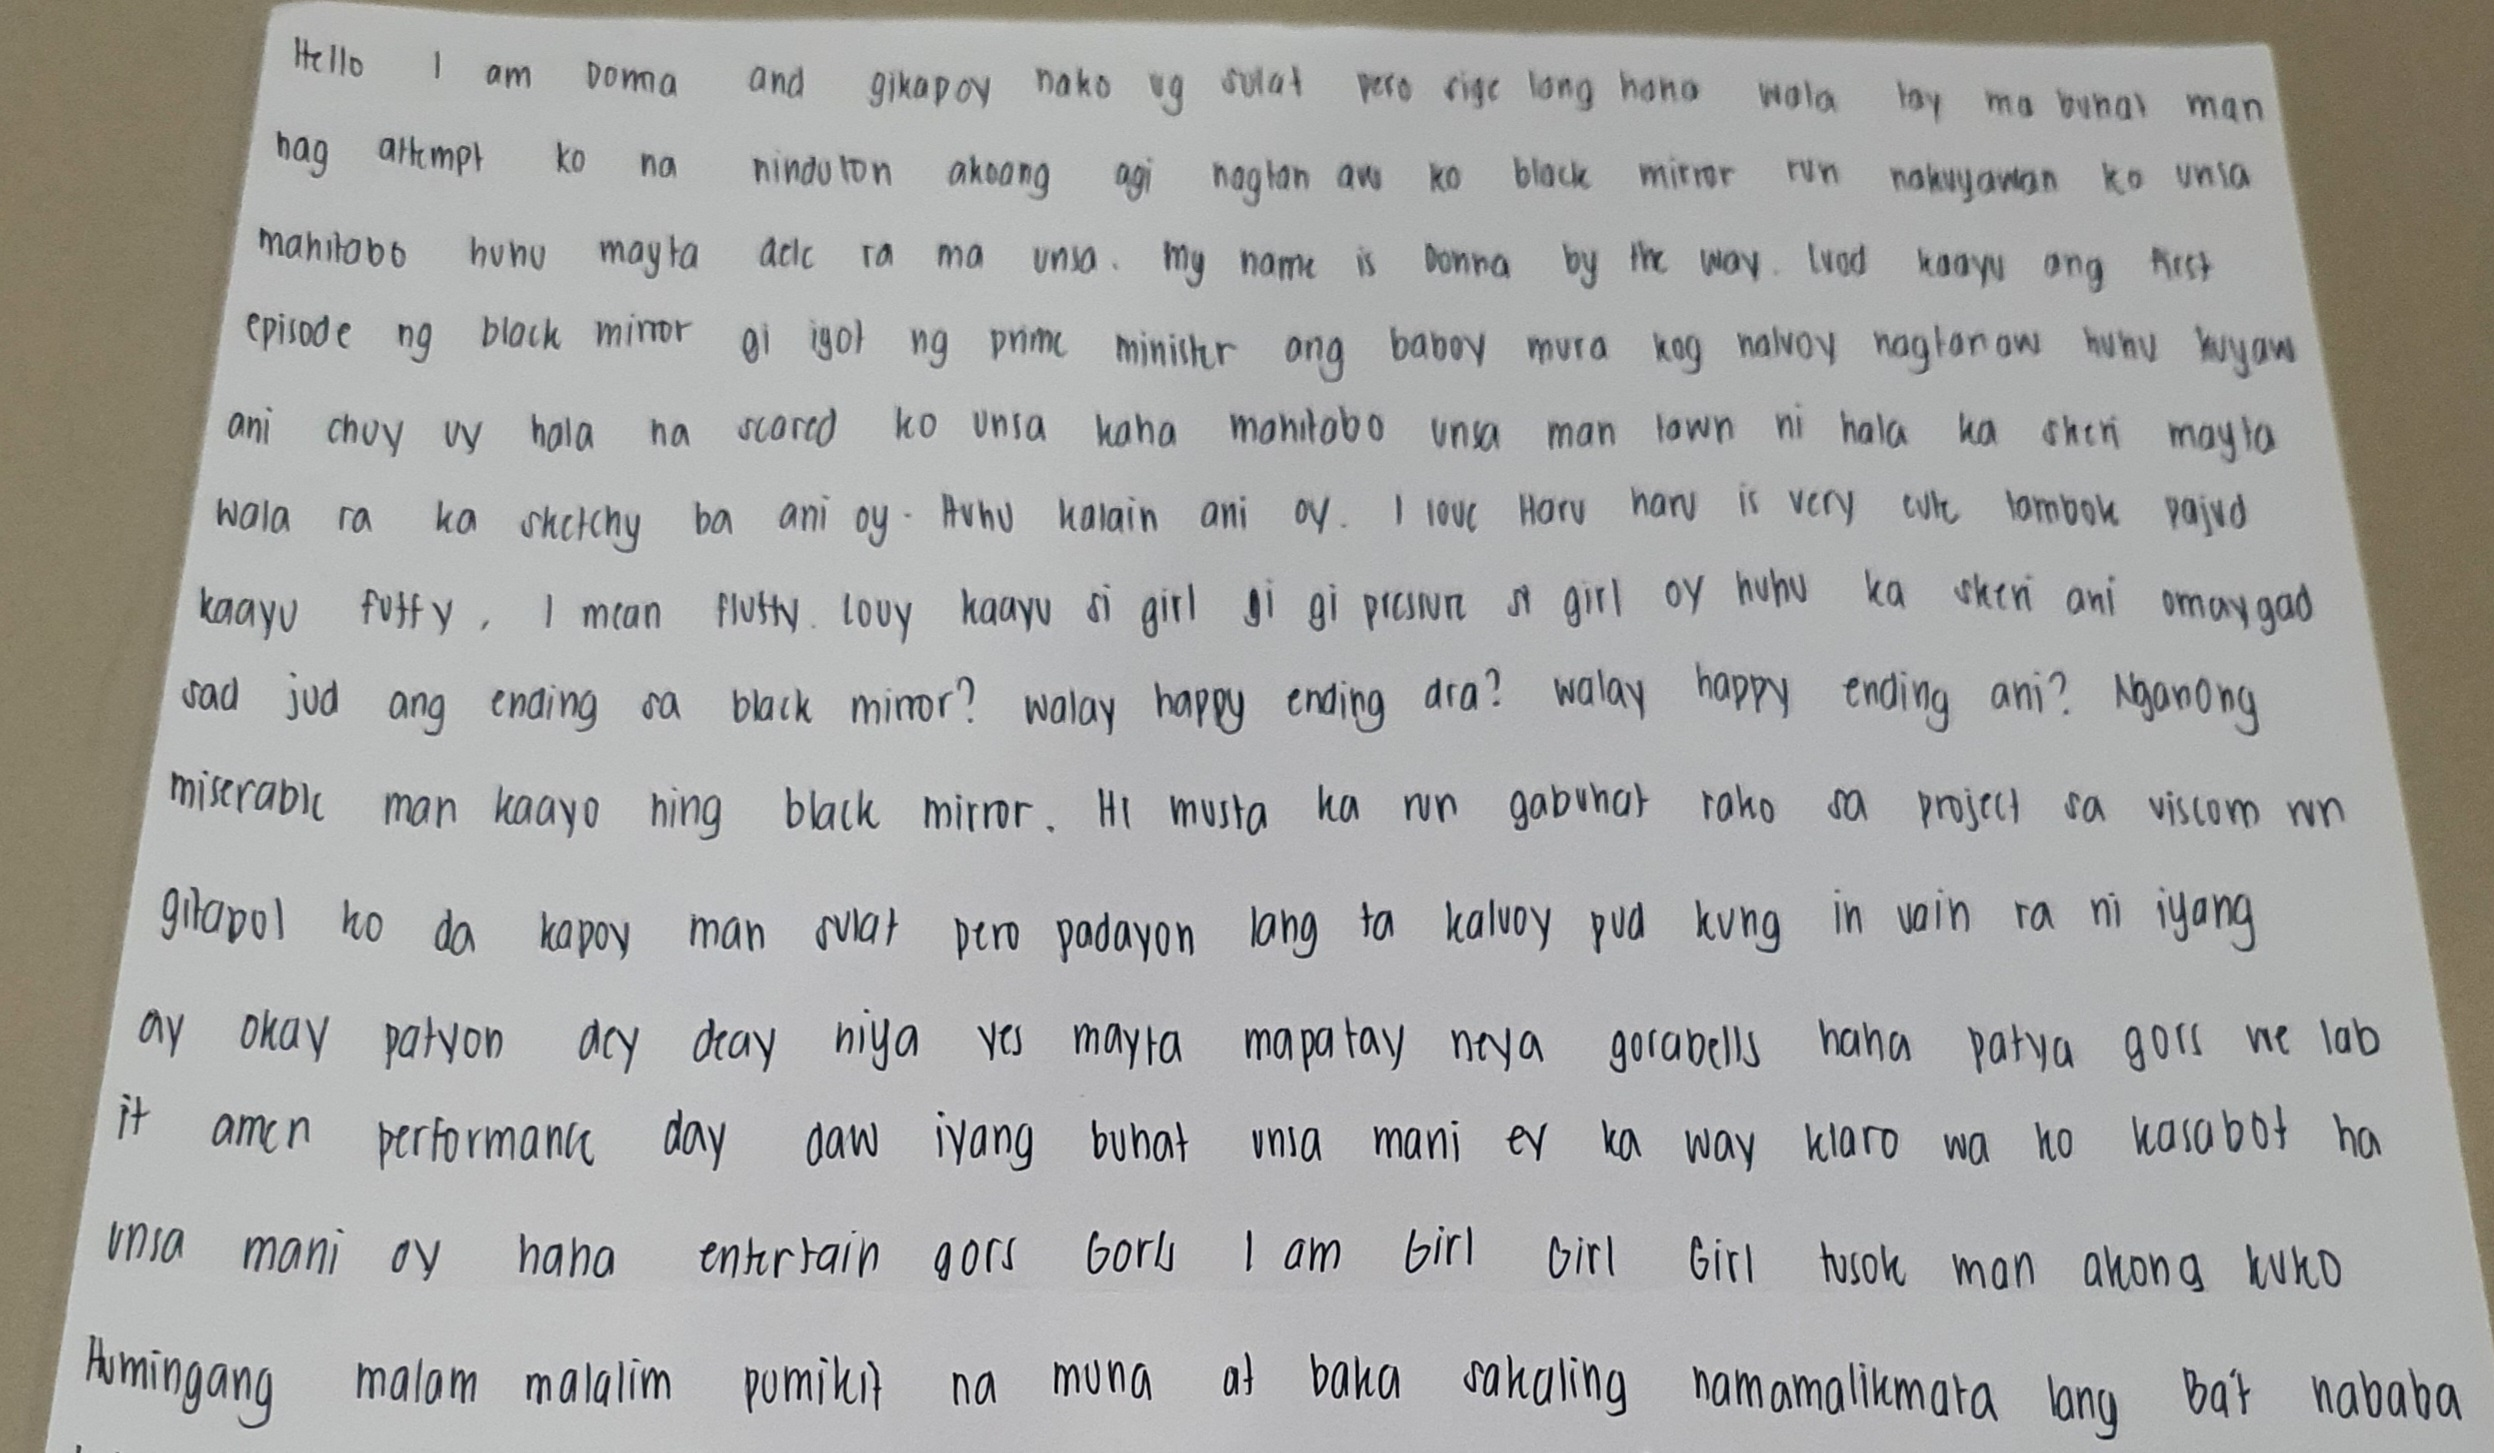 Hello I am Donna and gikapoy nako ug sulat pero sige lang haha wala tay ma buhat man
nag attempt ko na ninduton akoang agi nagtan aw ko black mirror run nakuyawan ko unsa
mahitabo huhu mayta dele ra ma unsa. My name is Donna by the way. Luod kaayu ang first
episode ng black mirror gi igot ng prime minister ang baboy mura kog naluoy nagtanaw huhu kuyaw
ani chuy uy hala na scared ko unsa kaha mahitabo unsa man tawn ni hala ka skeri mayta
wala ra ka sketchy ba ani oy. Huhu kalain ani oy. I love Haru haru is very cute tambok pajud
kaayu fuffy, I mean fluffy. Louy kaayu si girl gi gi pressure si girl oy huhu ka skeri ani omaygad
sad jud ang ending sa black mirror? walay happy ending dra? walay happy ending ani? Nganong
miserable man kaayo ning black mirror. Hi musta ka run gabuhat rako sa project sa viscom run
gitapol ko da kapoy man sulat pero padayon lang ta kaluoy pud kung in vain ra ni iyang
ay okay patyon dey deay niya yes mayta mapatay neya gorabells haha patya gors we lab
it amen performance day daw iyang buhat unsa mani ey ka way klaro wa ko kasabot ha
unsa mani oy haha entertain gors Gorls I am Girl Girl Girl tusok man akong kuko
Humingang malam malalim pumikit na muna at baka sakaling namamalikmata lang Ba't nababa